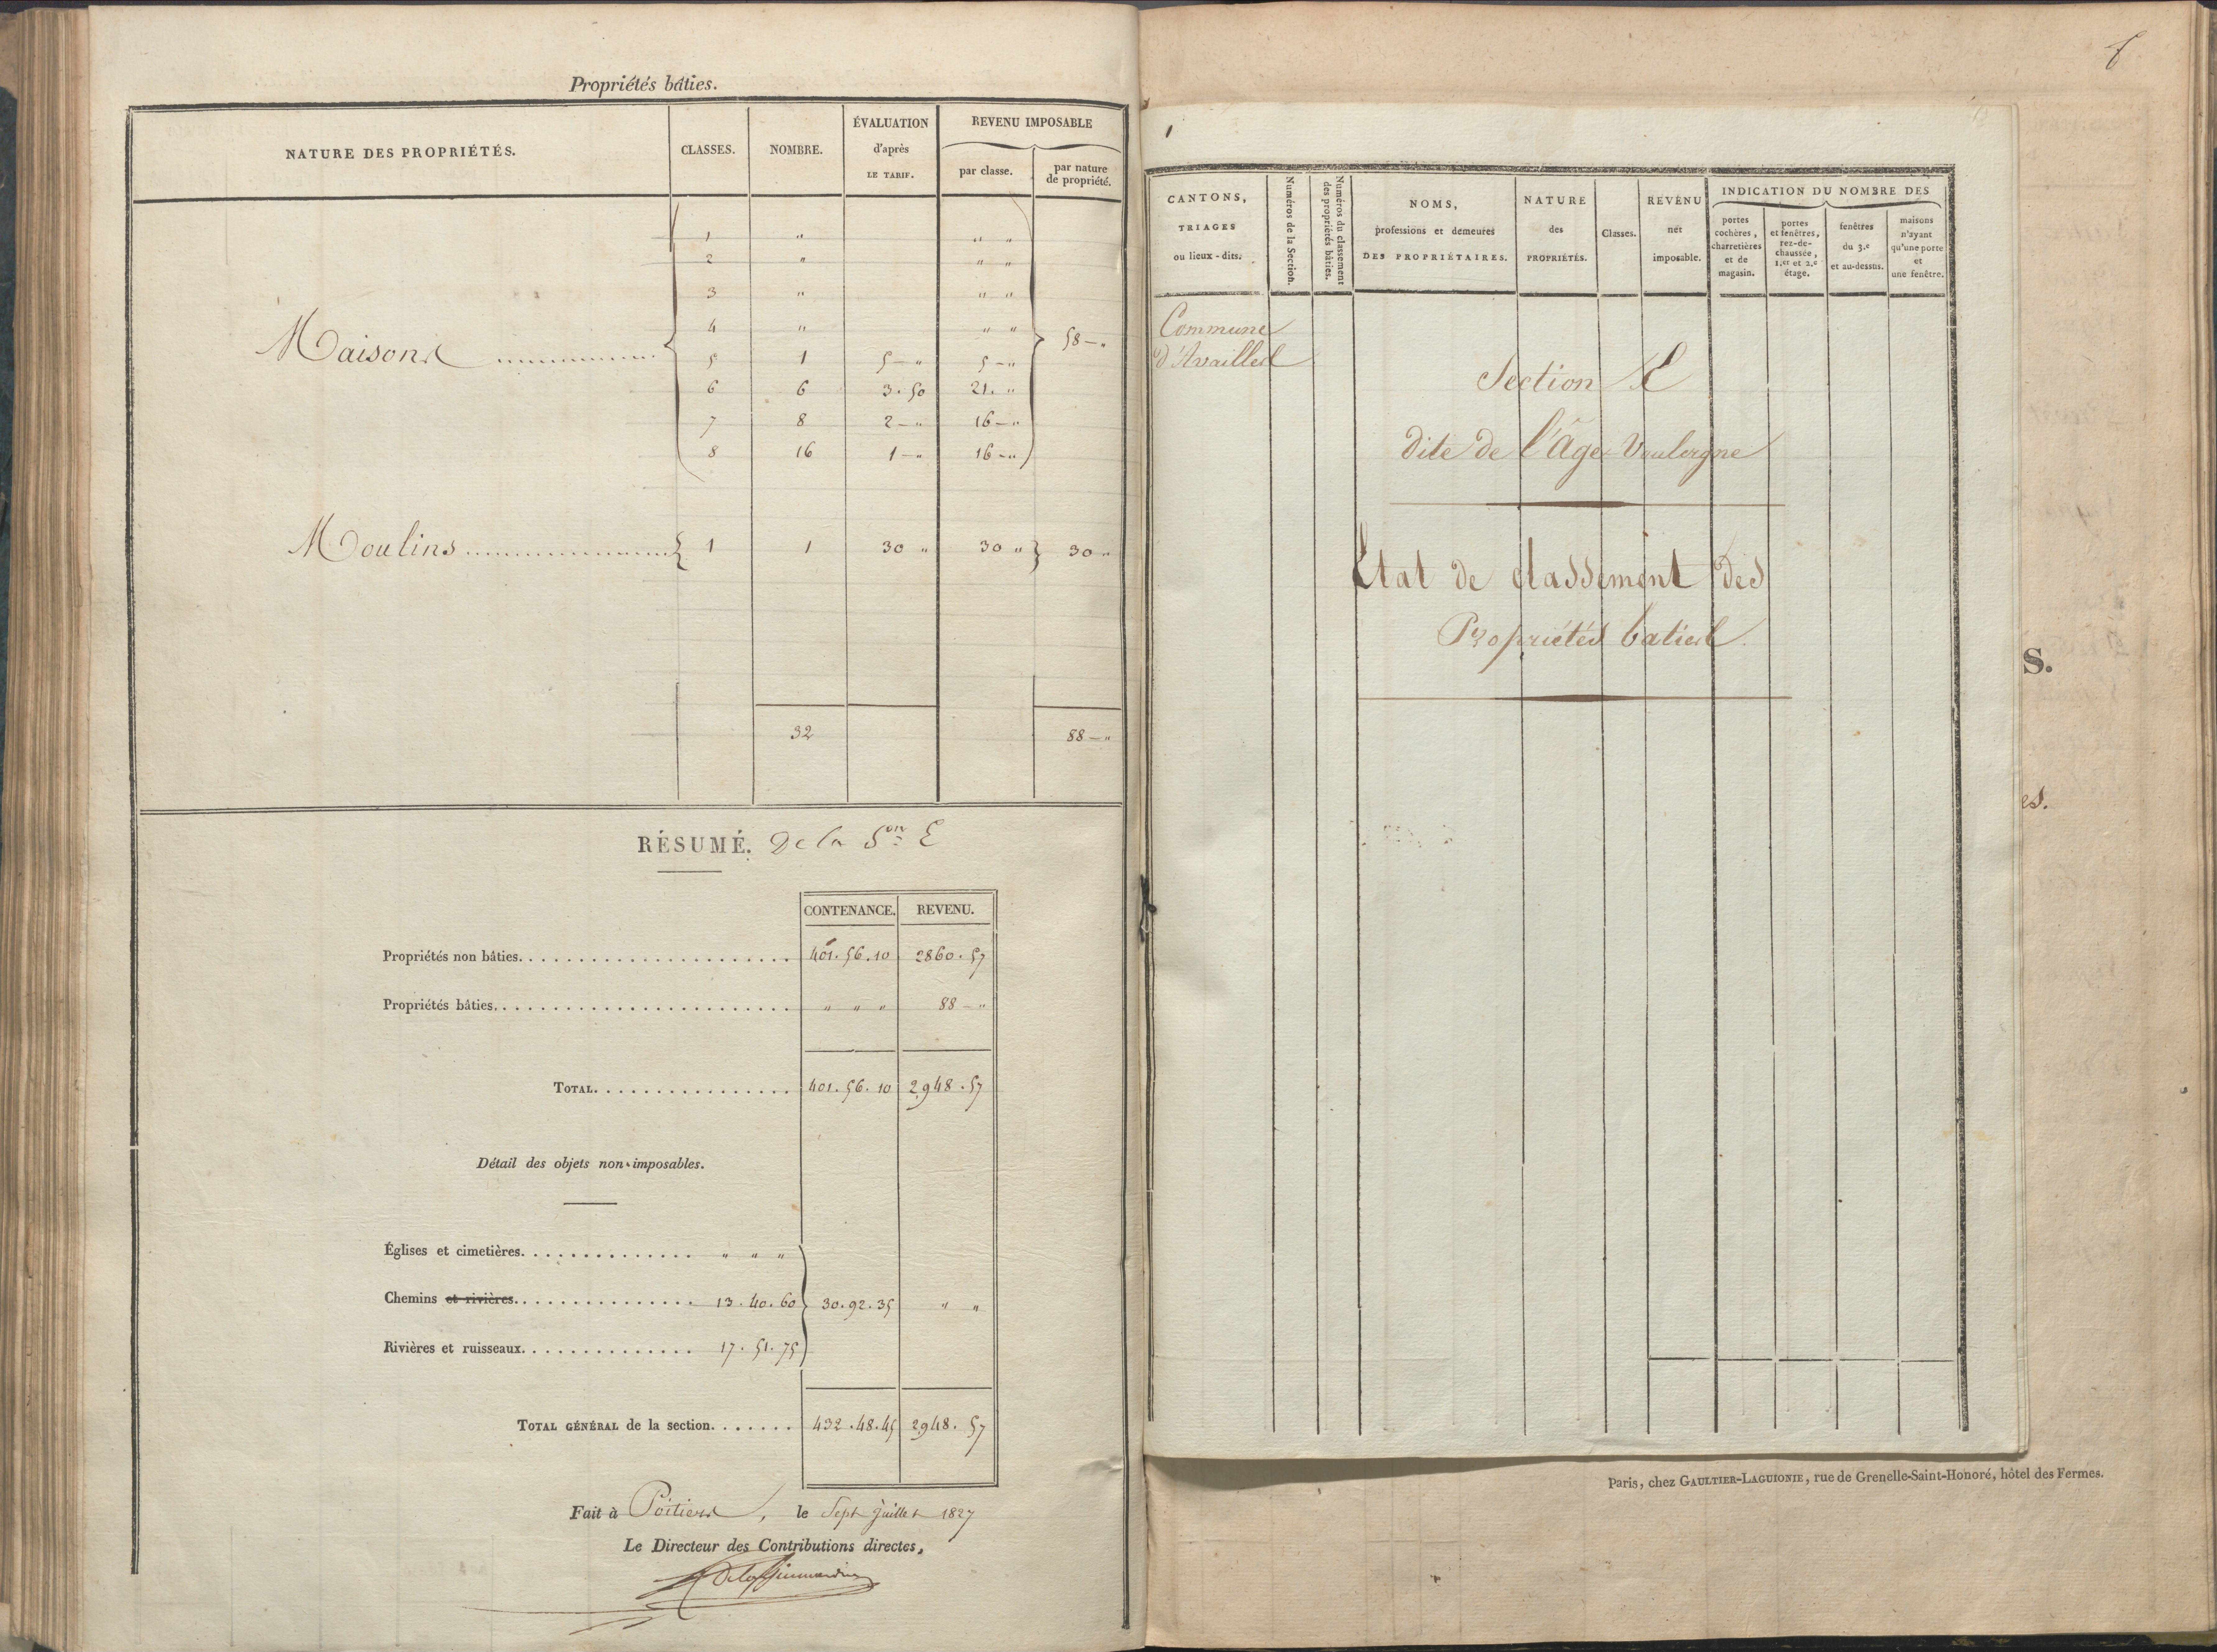 Propriétés bâties.
NATURE DES PROPRIÉTÉS. CLASSES. NOMBRE. ÉVALUATION d'après LE TARIF. REVENU IMPOSABLE par classe. par nature de propriété.
1 " " "
2 " " "
3 " " "
4 " " "
Maisons 58 – "
5 1 5 – " 5 – "
6 6 3 . 50 21 . "
7 8 2 – " 16 – "
8 16 1 – " 16 – "
Moulins 1 1 30 " 30 " 30 "
32 88 – "
RÉSUMÉ. De la Son E
CONTENANCE. REVENU.
Propriétés non bâties. 401 . 56 . 10 2860 . 57
Propriétés bâties. " " " 88 – "
TOTAL. 401 . 56 . 10 2948 . 57
Détail des objets non-imposables.
Églises et cimetières. " " "
Chemins et rivières. 13 . 40 . 60 30 . 92 . 35 " "
Rivières et ruisseaux. 17 . 51 . 75
TOTAL GÉNÉRAL de la section. 432 . 48 . 45 2948 . 57
Fait à Poitiers, le Sept Juillet 1827
Le Directeur des Contributions directes,
1
CANTONS, TRIAGES ou lieux-dits.
Numéros de la Section.
Numéros du classement des propriétés bâties.
NOMS, professions et demeures DES PROPRIÉTAIRES.
NATURE des PROPRIÉTÉS.
Classes.
REVENU net imposable.
INDICATION DU NOMBRE DES
portes cochères, charretières et de magasin.
portes et fenêtres, rez-de-chaussée, 1.er et 2.e étage.
fenêtres du 3.e et au-dessus.
maisons n'ayant qu'une porte et une fenêtre.
Commune
d'Availles
Section E
dite de l'Âge
Etat de classement des
Propriétés baties.
S.
es.
Paris, chez GAULTIER-LAGUIONIE, rue de Grenelle-Saint-Honoré, hôtel des Fermes.